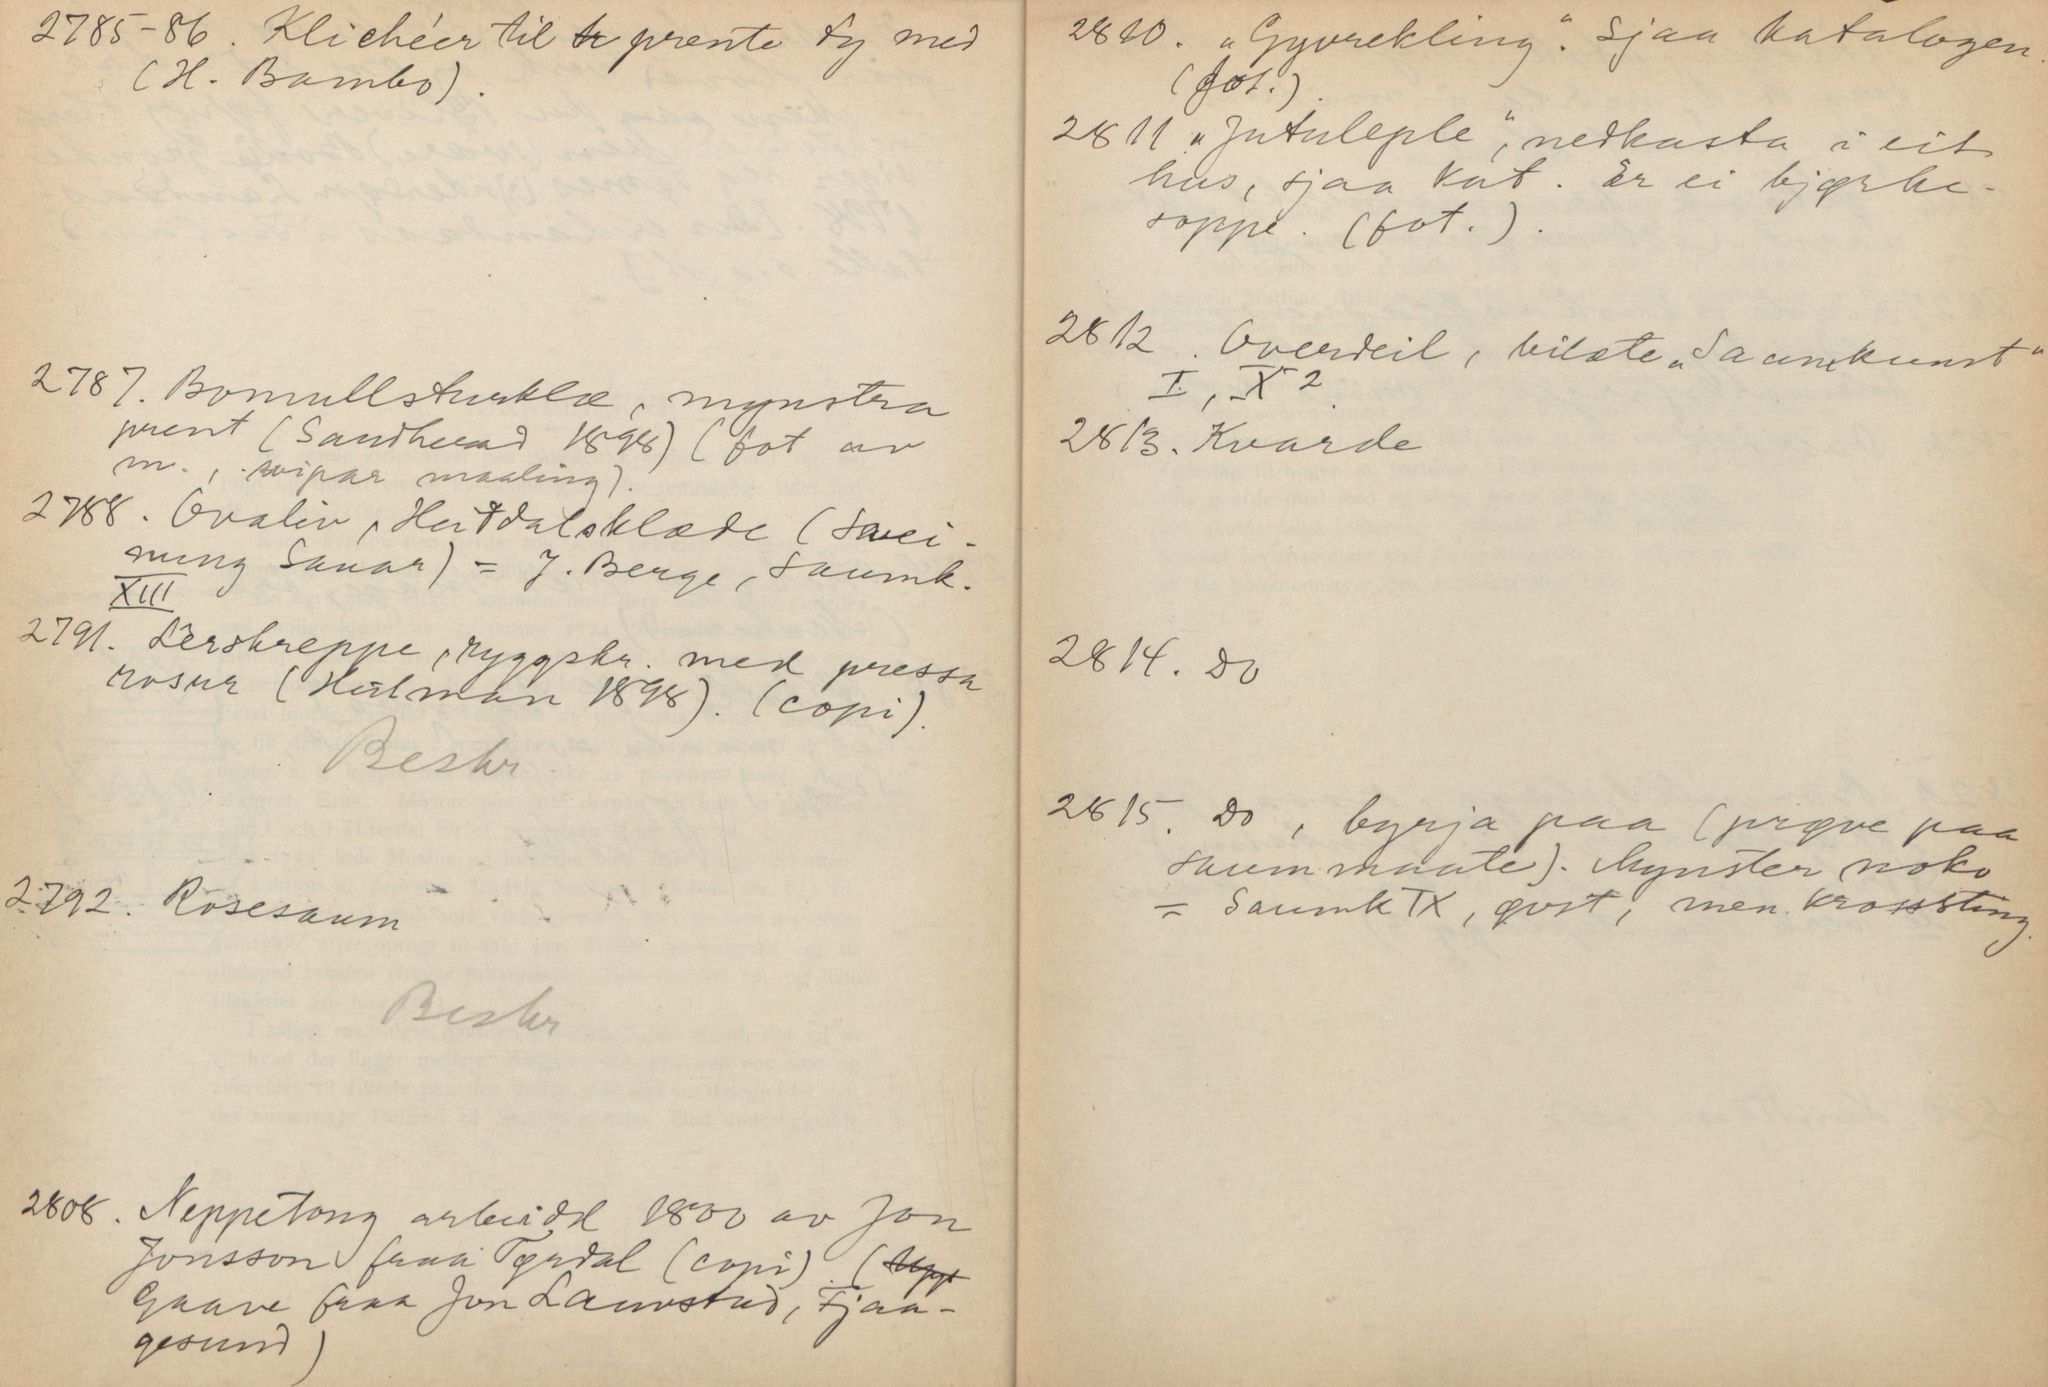 2785-86. Klichéer til prente ty med
(H. Bambo).
2787. Bomullsturklæ, mynstra
prent (Sandheend 1898) (fot av
m., svipar maaling).
2788. Ovaliv, Heitdalsklæde (Svei-
nung Sanar) = J. Berge, Saumk.
XIII
2791. Lerskreppe, ryggskr. med pressa
rosur (Heilman 1898). (copi).
Beskr
2792. Rosesaum
Beskr
2808. Neppetong arbeidd 1800 av Jon
Jonsson fraa Tørdal (copi). (
Gaave fraa Jon Lauvstad, Fjaa-
gesund)
2810. „Gyvrekling“. Sjaa katalogen.
(fot.).
2811 „Jutuleple“, nedkasta i eit
hus, sjaa kat. Er ei bjørke-
soppe. (fot.).
2812. Overdeil, bilæte „Saumkunst“
I, X 2
2813. Kvarde
2814. Do
2815. Do, byrja paa (prøve paa
saummaate). Mynster noko
= Saumk IX, øvst, men krossting.